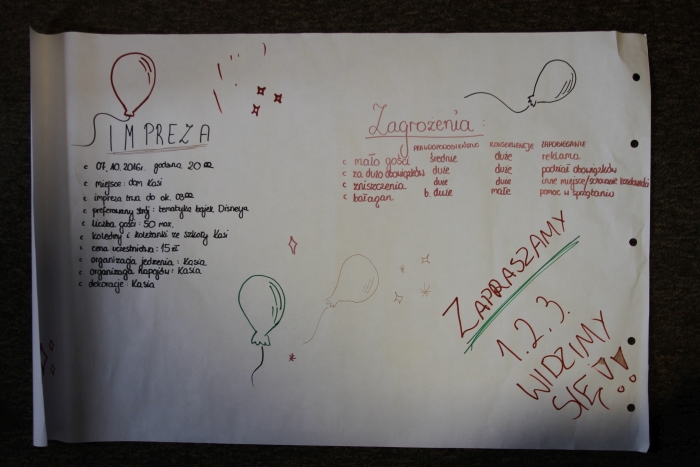 IMPREZA
07.10.2016r. godzina 20:00
miejsce: dom Kasi
impreza trwa do ok. 03:00
preferowany strój: tematyka bajek Disneya
liczba gości: 50 max.
koledzy i koleżanki ze szkoły Kasi
cena uczestnictwa: 15 zł
organizacja jedzenia: Kasia
organizacja napojów: Kasia
dekoracje: Kasia
Zagrożenia:
PRAWDOPODOBIEŃSTWO KONSEKWENCJE ZAPOBIEGANIE
mało gości średnie duże reklama
za dużo obowiązków duże duże podział obowiązków
zniszczenia duże duże inne miejsce/schowanie
bałagan b. duże małe pomoc w sprzątaniu
ZAPRASZAMY
1.2.3.
WIDZIMY
SIĘ